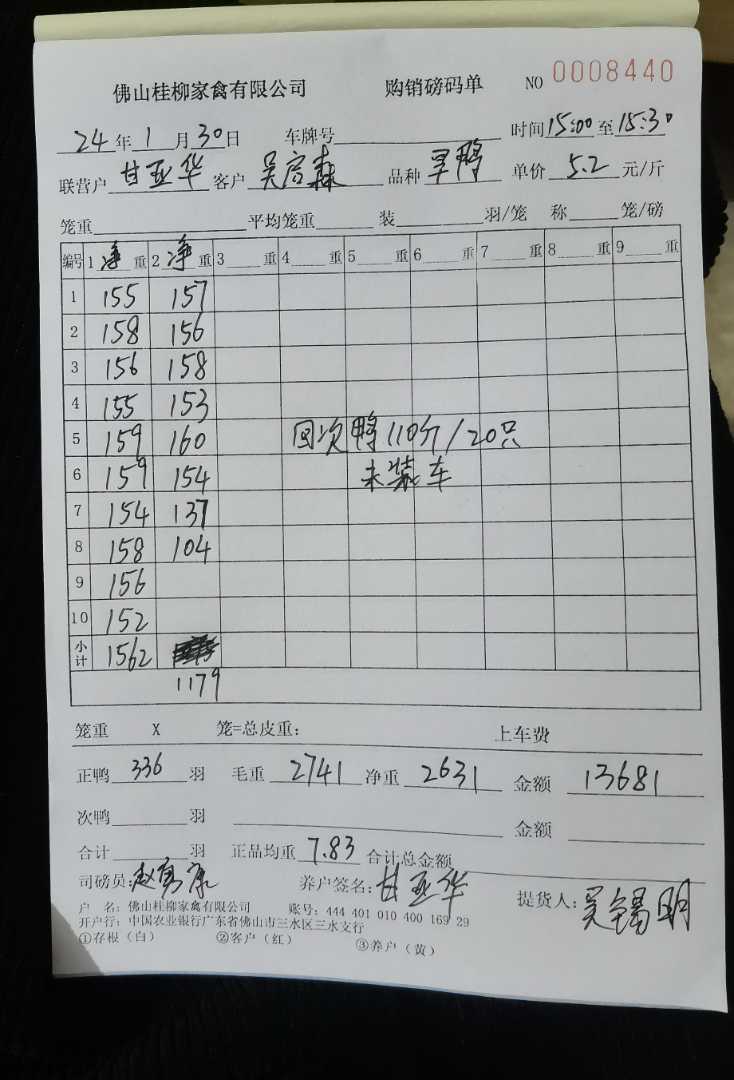 佛山桂柳家禽有限公司 购销磅码单 NO 0008440
24年1月30日 车牌号 时间15:00至15:30
联营户 甘亚华 客户 吴富森 品种 旱鸭 单价 5.2 元/斤
笼重 平均笼重 装 羽/笼 称 笼/磅
编号 1净重 2净重 3 重 4 重 5 重 6 重 7 重 8 重 9 重
1 155 157
2 158 156
3 156 158
4 155 153
5 159 160 回次鸭110斤/20只
6 159 154 未装车
7 154 137
8 158 104
9 156
10 152
小计 1562
1179
笼重 X 笼=总皮重: 上车费
正鸭 336 羽 毛重 2741 净重 2631 金额 13681
次鸭 羽 金额
合计 羽 正品均重 7.83 合计总金额
司磅员:赵勇康 养户签名:甘亚华 提货人:吴锡明
户 名: 佛山桂柳家禽有限公司 账号: 444 401 010 400 169 29
开户行: 中国农业银行广东省佛山市三水区三水支行
①存根(白) ②客户(红) ③养户(黄)